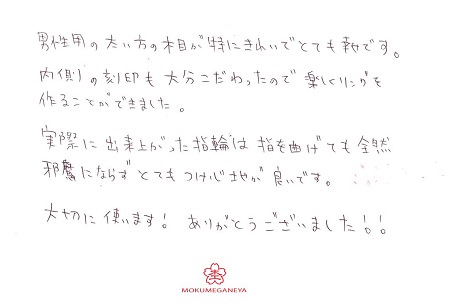 男性用の太い方の木目が特にきれいでとても幸せです。
内側の刻印も大分こだわったので楽しくリングを
作ることができました。
実際に出来上がった指輪は指を曲げても全然
邪魔にならずとてもつけ心地が良いです。
大切に使います！ ありがとうございました！！
MOKUMEGANEYA